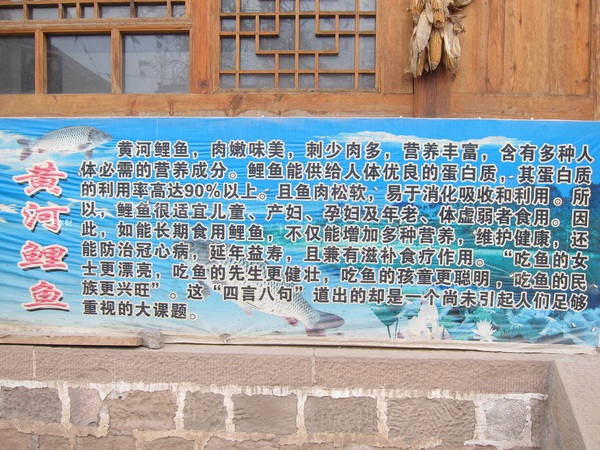 黄河鲤鱼
黄河鲤鱼，肉嫩味美，刺少肉多，营养丰富，含有多种人
体必需的营养成分。鲤鱼能供给人体优良的蛋白质，其蛋白质
的利用率高达90%以上。且鱼肉松软，易于消化吸收和利用。所
以，鲤鱼很适宜儿童、产妇、孕妇及年老、体虚弱者食用。因
此，如能长期食用鲤鱼，不仅能增加多种营养，维护健康，还
能防治冠心病，延年益寿，且兼有滋补食疗作用。“吃鱼的女
士更漂亮，吃鱼的先生更健壮，吃鱼的孩童更聪明，吃鱼的民
族更兴旺”。这“四言八句”道出的却是一个尚未引起人们足够
重视的大课题。